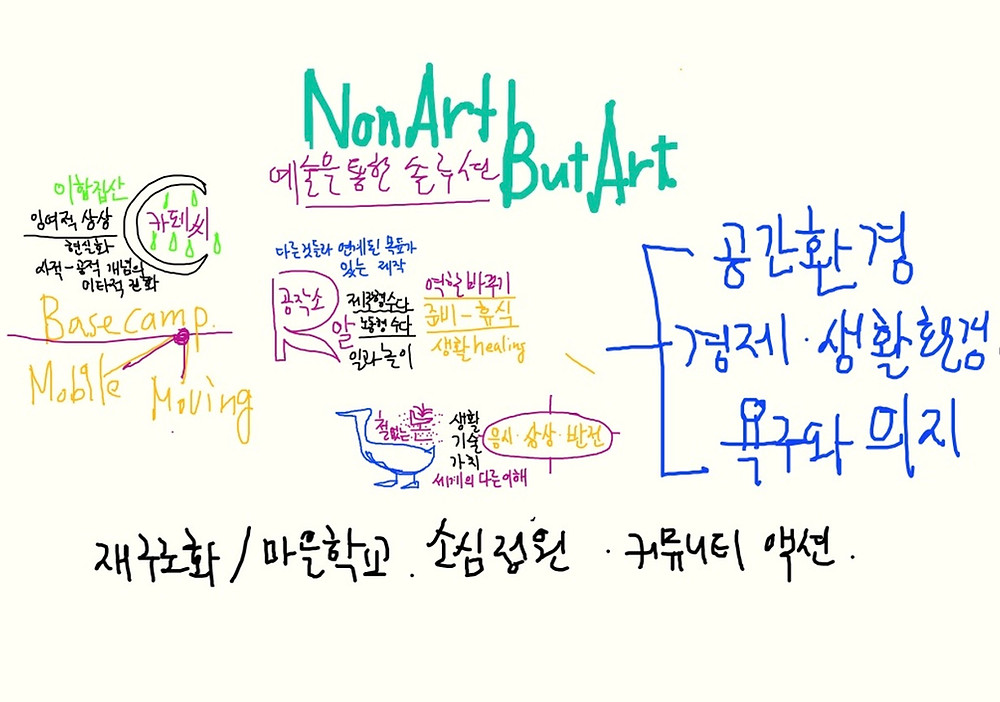 Non Art
But Art.
예술을 통한 솔루션
이합집산
잉여적 상상
현실화
사적-공적 개념의
이타적 전화
카페씨
Basecamp.
Mobile
Moving
다른것들과 연계된 목록가
있는 제작
공작소
알
제작형수다
노동형수다
일과놀이
역할바꾸기
준비-휴식
생활healing
철없는
생활
기술
가치
세계의 다른이해
응시·상상·반전
공간환경
경제·생활환경
욕구와 의지
재구조화 / 마을학교. 소심정원 · 커뮤니티 액션.